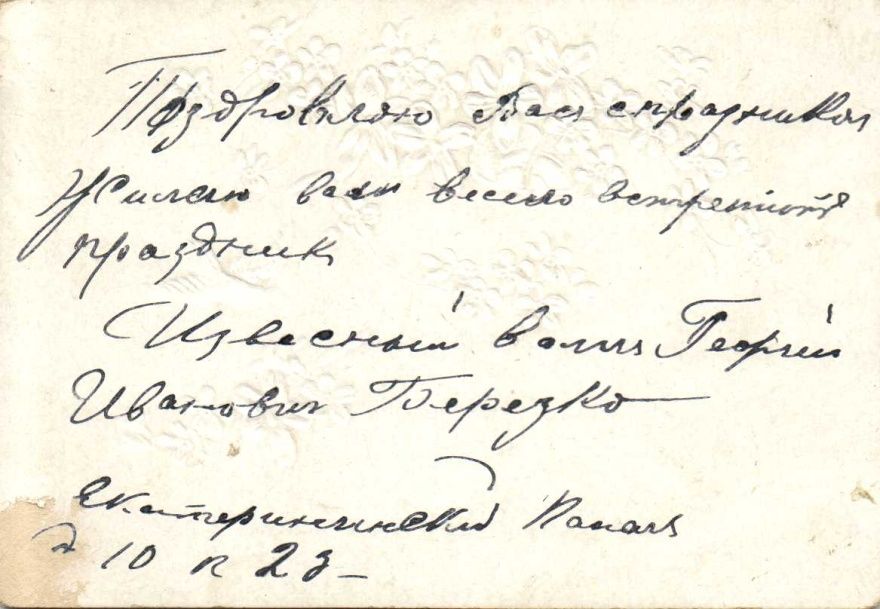 Поздровляю Вас спраздником
Жилаю вам весело встретить
праздник
Извесный вам Георгий
Иванович Березко
Екатерининский Канал
д 10 к 23